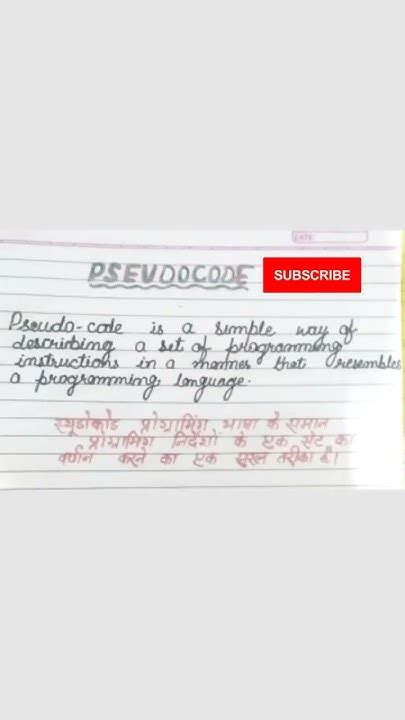 DATE
PSEUDOCODE SUBSCRIBE
Pseudo-code is a simple way of
describing a set of programming
instructions in a manner that resembles
a programming language.
स्यूडोकोड प्रोग्रामिंग भाषा के समान
प्रोग्रामिंग निर्देशों के एक सेट का
वर्णन करने का एक सरल तरीका है।